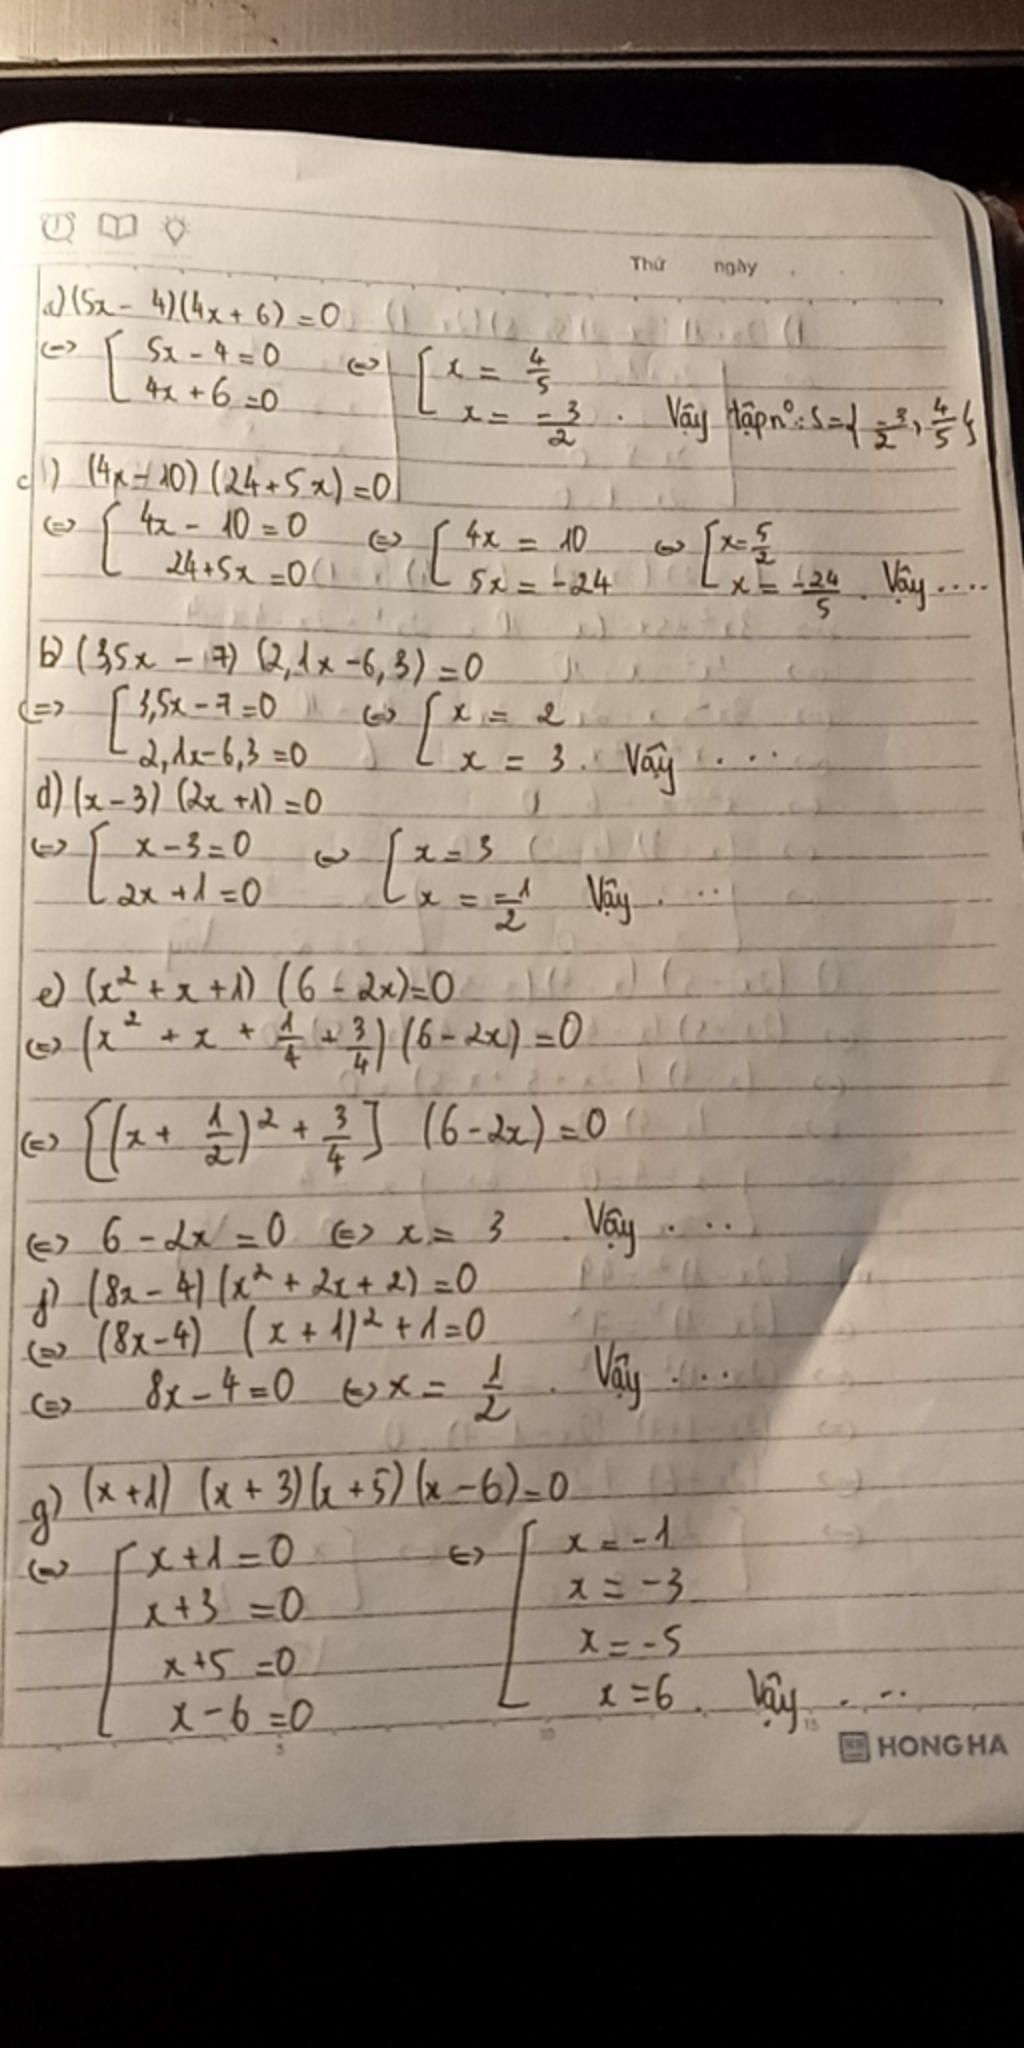 Thứ ngày
a) (5x - 4)(4x + 6) = 0
<=> [ 5x - 4 = 0 <=> [ x = 4/5
4x + 6 = 0 x = -3/2 . Vậy tập n⁰: S = { -3/2 , 4/5 }
c) (4x - 10)(24 + 5x) = 0
<=> [ 4x - 10 = 0 <=> [ 4x = 10 <=> [ x = 5/2
24 + 5x = 0 5x = -24 x = -24/5 . Vậy ....
b) (3,5x - 7)(2,1x - 6,3) = 0
<=> [ 3,5x - 7 = 0 <=> [ x = 2
2,1x - 6,3 = 0 x = 3 . Vậy ...
d) (x - 3)(2x + 1) = 0
<=> [ x - 3 = 0 <=> [ x = 3
2x + 1 = 0 x = -1/2 Vậy ...
e) (x² + x + 1)(6 - 2x) = 0
<=> (x² + x + 1/4 + 3/4)(6 - 2x) = 0
<=> [(x + 1/2)² + 3/4] (6 - 2x) = 0
<=> 6 - 2x = 0 <=> x = 3 Vậy ...
f) (8x - 4)(x² + 2x + 2) = 0
<=> (8x - 4) (x + 1)² + 1 = 0
<=> 8x - 4 = 0 <=> x = 1/2 . Vậy ...
g) (x + 1)(x + 3)(x + 5)(x - 6) = 0
<=> [ x + 1 = 0 <=> [ x = -1
x + 3 = 0 x = -3
x + 5 = 0 x = -5
x - 6 = 0 x = 6 . Vậy ...
5 10 15
HONG HA